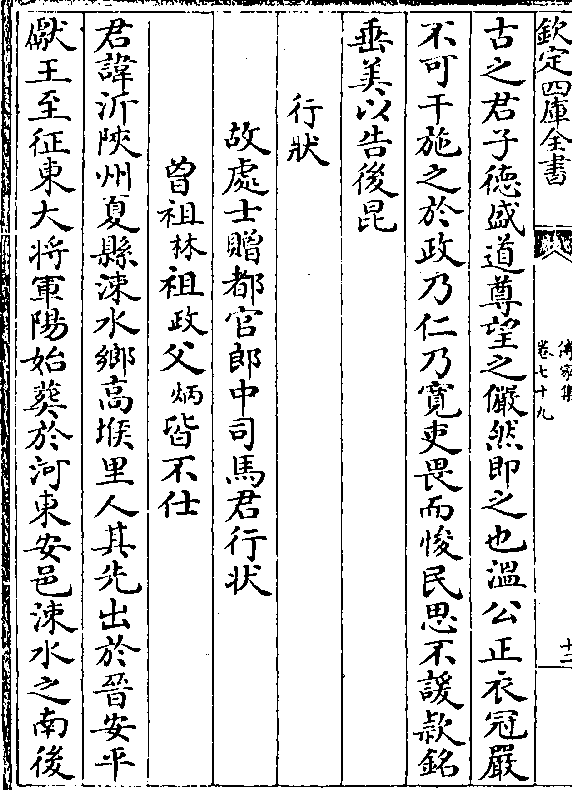 欽定四庫全書
傳家集
卷七十九
十二
古之君子德盛道尊望之儼然即之也溫公正衣冠嚴
不可干施之於政乃仁乃寬吏畏而悛民思不諼款銘
垂美以告後昆
行狀
故處士贈都官郎中司馬君行狀
曾祖林祖政父炳皆不仕
君諱沂陝州夏縣涑水鄉高堠里人其先出於晉安平
獻王至征東大將軍陽始葬於河東安邑涑水之南後